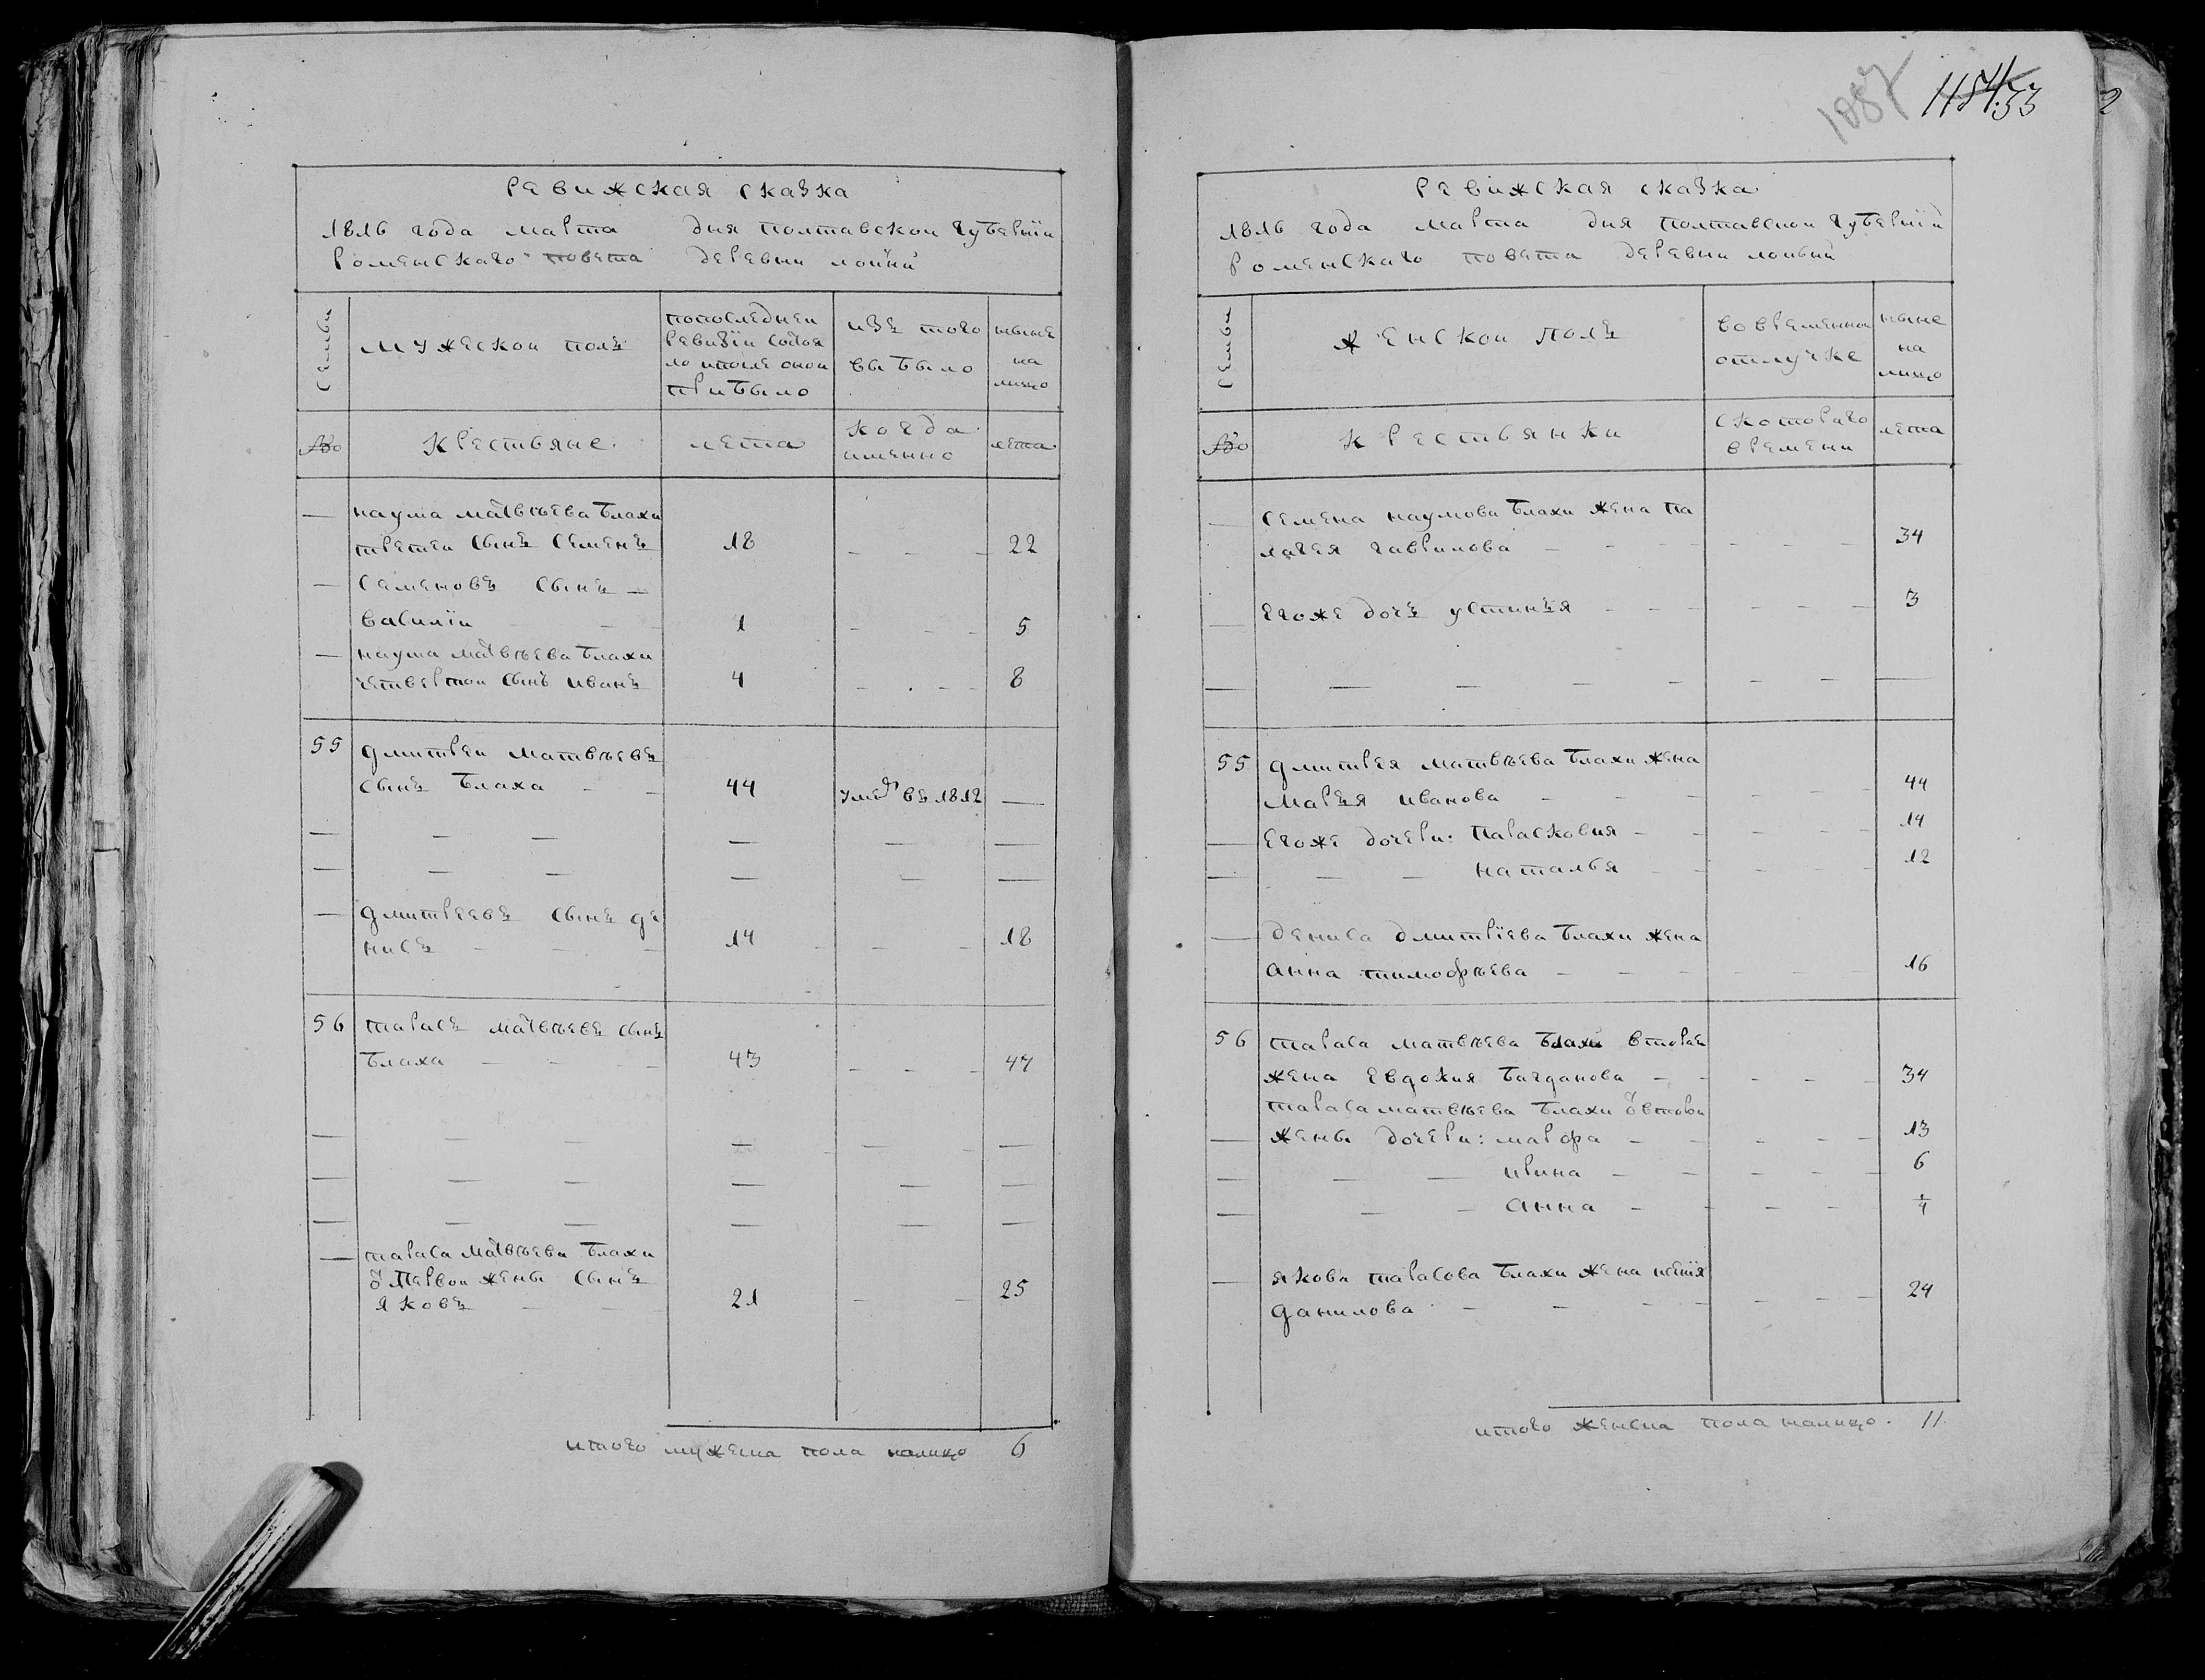 ревижская сказка
1816 года марта дня полтавской губернїи
роменскаго повета деревни
семьи
мужеской полъ
попоследнеи
ревизїи состоя
ло ипосле оной
прибыло
изъ того
выбыло
ныне
на
лицо
№
крестьяне
лета
когда
именно
лета
— наума матвѣева блахи
третеи сынъ семенъ 18 - - - 22
— семеновъ сынъ —
василїи - - 1 - - - 5
— наума матвѣева блахи
четвертои сынъ иванъ 4 - - - 8
55 дмитреи матвѣевъ
сынъ блаха - - 44 умеръ въ 1812 —
— — — — — —
— — — — — —
— дмитреевъ сынъ де
нисъ - - - 14 - - - 18
56 тарасъ матвѣевъ сынъ
блаха - - - 43 - - - 47
— — — — — —
— — — — — —
— — — — — —
— тараса матвѣева блахи
ѿ первои жены сынъ
яковъ - - - 21 - - 25
итого мужеска пола налицо 6
1087 1184 53
2
ревижская сказка
1816 года марта дня полтавской губернїи
роменскаго повета деревни
семьи
женской полъ
вовременной
отлучке
ныне
на
лицо
№
крестьянки
скотораго
времени
лета
— семена наумова блахи жена па
лагея гаврилова - - - - - - 34
— егоже дочъ устинъя - - - - - - 3
— — — — - - - —
55 дмитрея матвѣева блахи жена
маръя иванова - - - - - 44
— егоже дочери: парасковия - - - - - 14
— — - наталья - - - - - 12
— дениса дмитрїева блахи жена
анна тимофѣева - - - 16
56 тараса матвѣева блахи вторая
жена евдокия багданова - - - - - 34
тараса матвѣева блахи ѿ вторы
— жены дочери: марфа - - - - - 13
— — — ирина - - - - - 6
— — - анна - - - - 1/4
— якова тарасова блахи жена
данилова - - - - - - - 24
итого женска пола налицо . 11